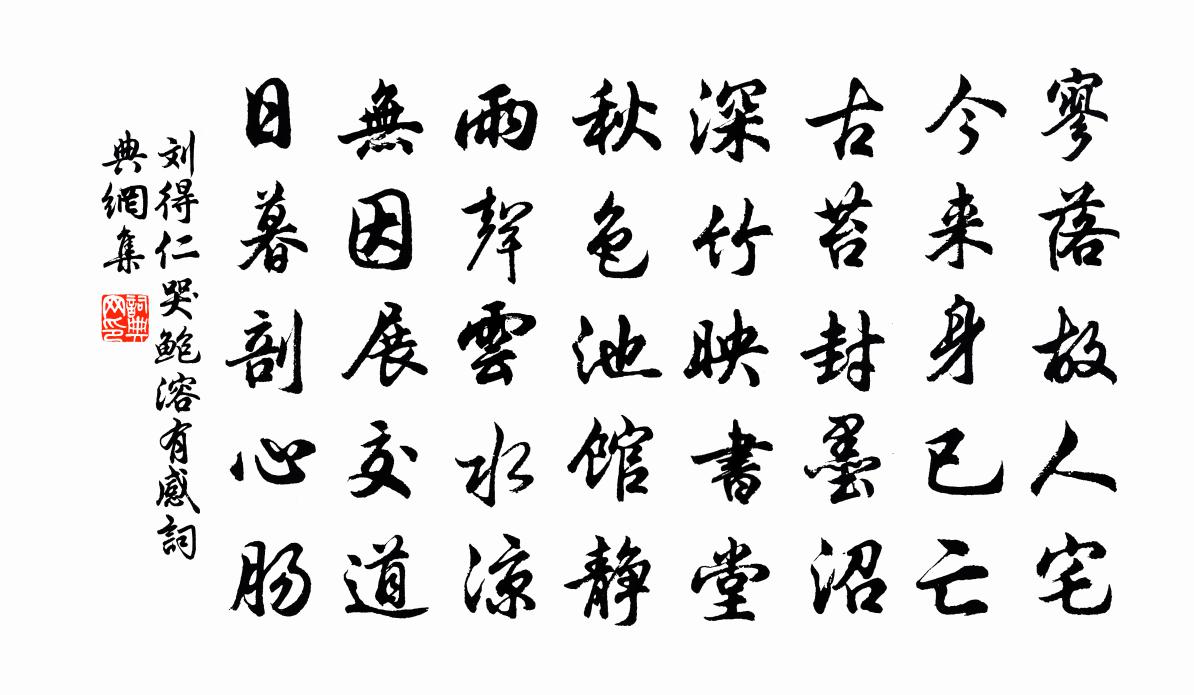 寥落故人宅
今来身已亡
古苔封墨沼
深竹映書堂
秋色池館静
雨聲雲水涼
無因展交道
日暮剖心肠
刘得仁哭鲍溶有感詞
典網集
詞典
网印